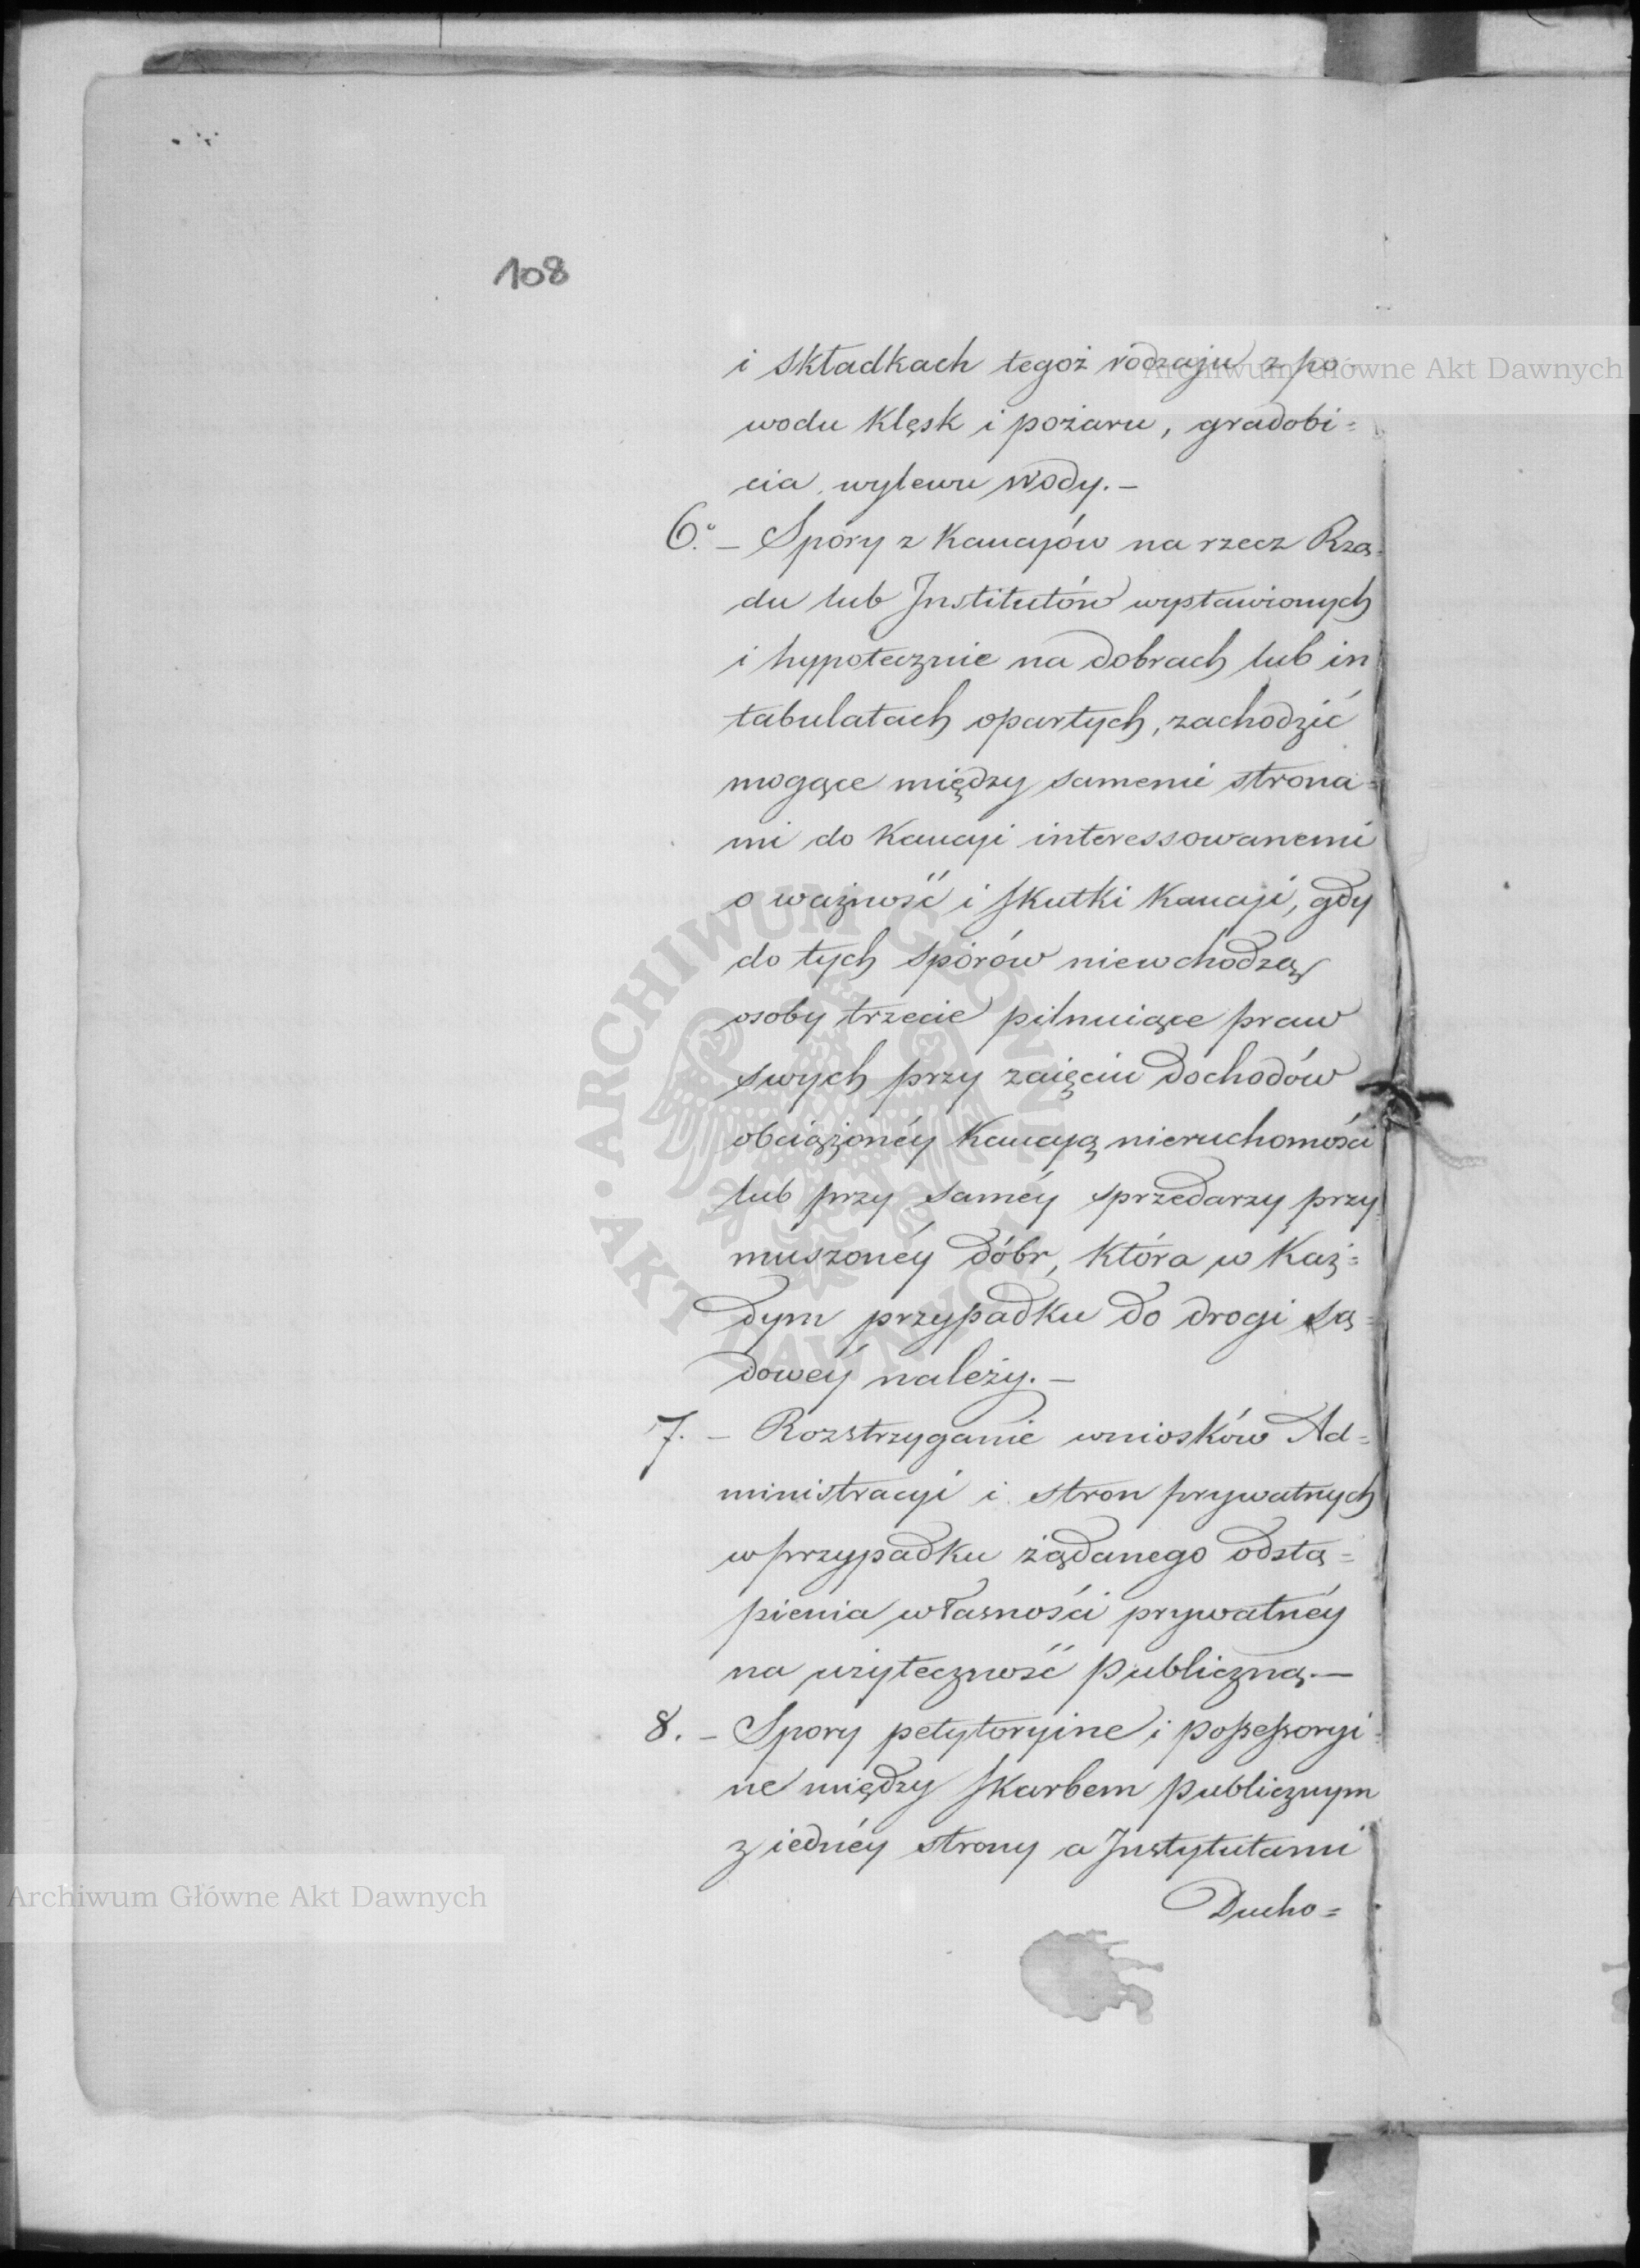 108
i składkach tegoż rodzaju z po-
wodu klęsk i pożaru, gradobi=
cia, wylewu wody.—
6.° — Spory z kaucyów na rzecz Rzą=
du lub Institutów wystawionych
i hypotecznie na dobrach lub in
tabulatach opartych, zachodzić
mogące między samemi strona=
mi do kaucyi interessowanemi
o ważność i skutki kaucyi, gdy
do tych spórów niewchodzą
osoby trzecie pilnuiące praw
swych przy zaięciu dochodów
obciążonéy kaucyą nieruchomości
lub przy saméy sprzedarzy przy
muszonéy dóbr, która w każ=
dym przypadku do drogi są=
dowéy należy.—
7. — Rozstrzyganie wniosków Ad=
ministracyi i stron prywatnych
w przypadku żądanego odstą=
pienia własności prywatnéy
na użyteczność publiczną.—
8. — Spory petytoryine i possessoryi=
ne między skarbem publicznym
z iednéy strony a Instytutami
Ducho=
Archiwum Główne Akt Dawnych
Archiwum Główne Akt Dawnych
ARCHIWUM GŁÓWNE AKT DAWNYCH